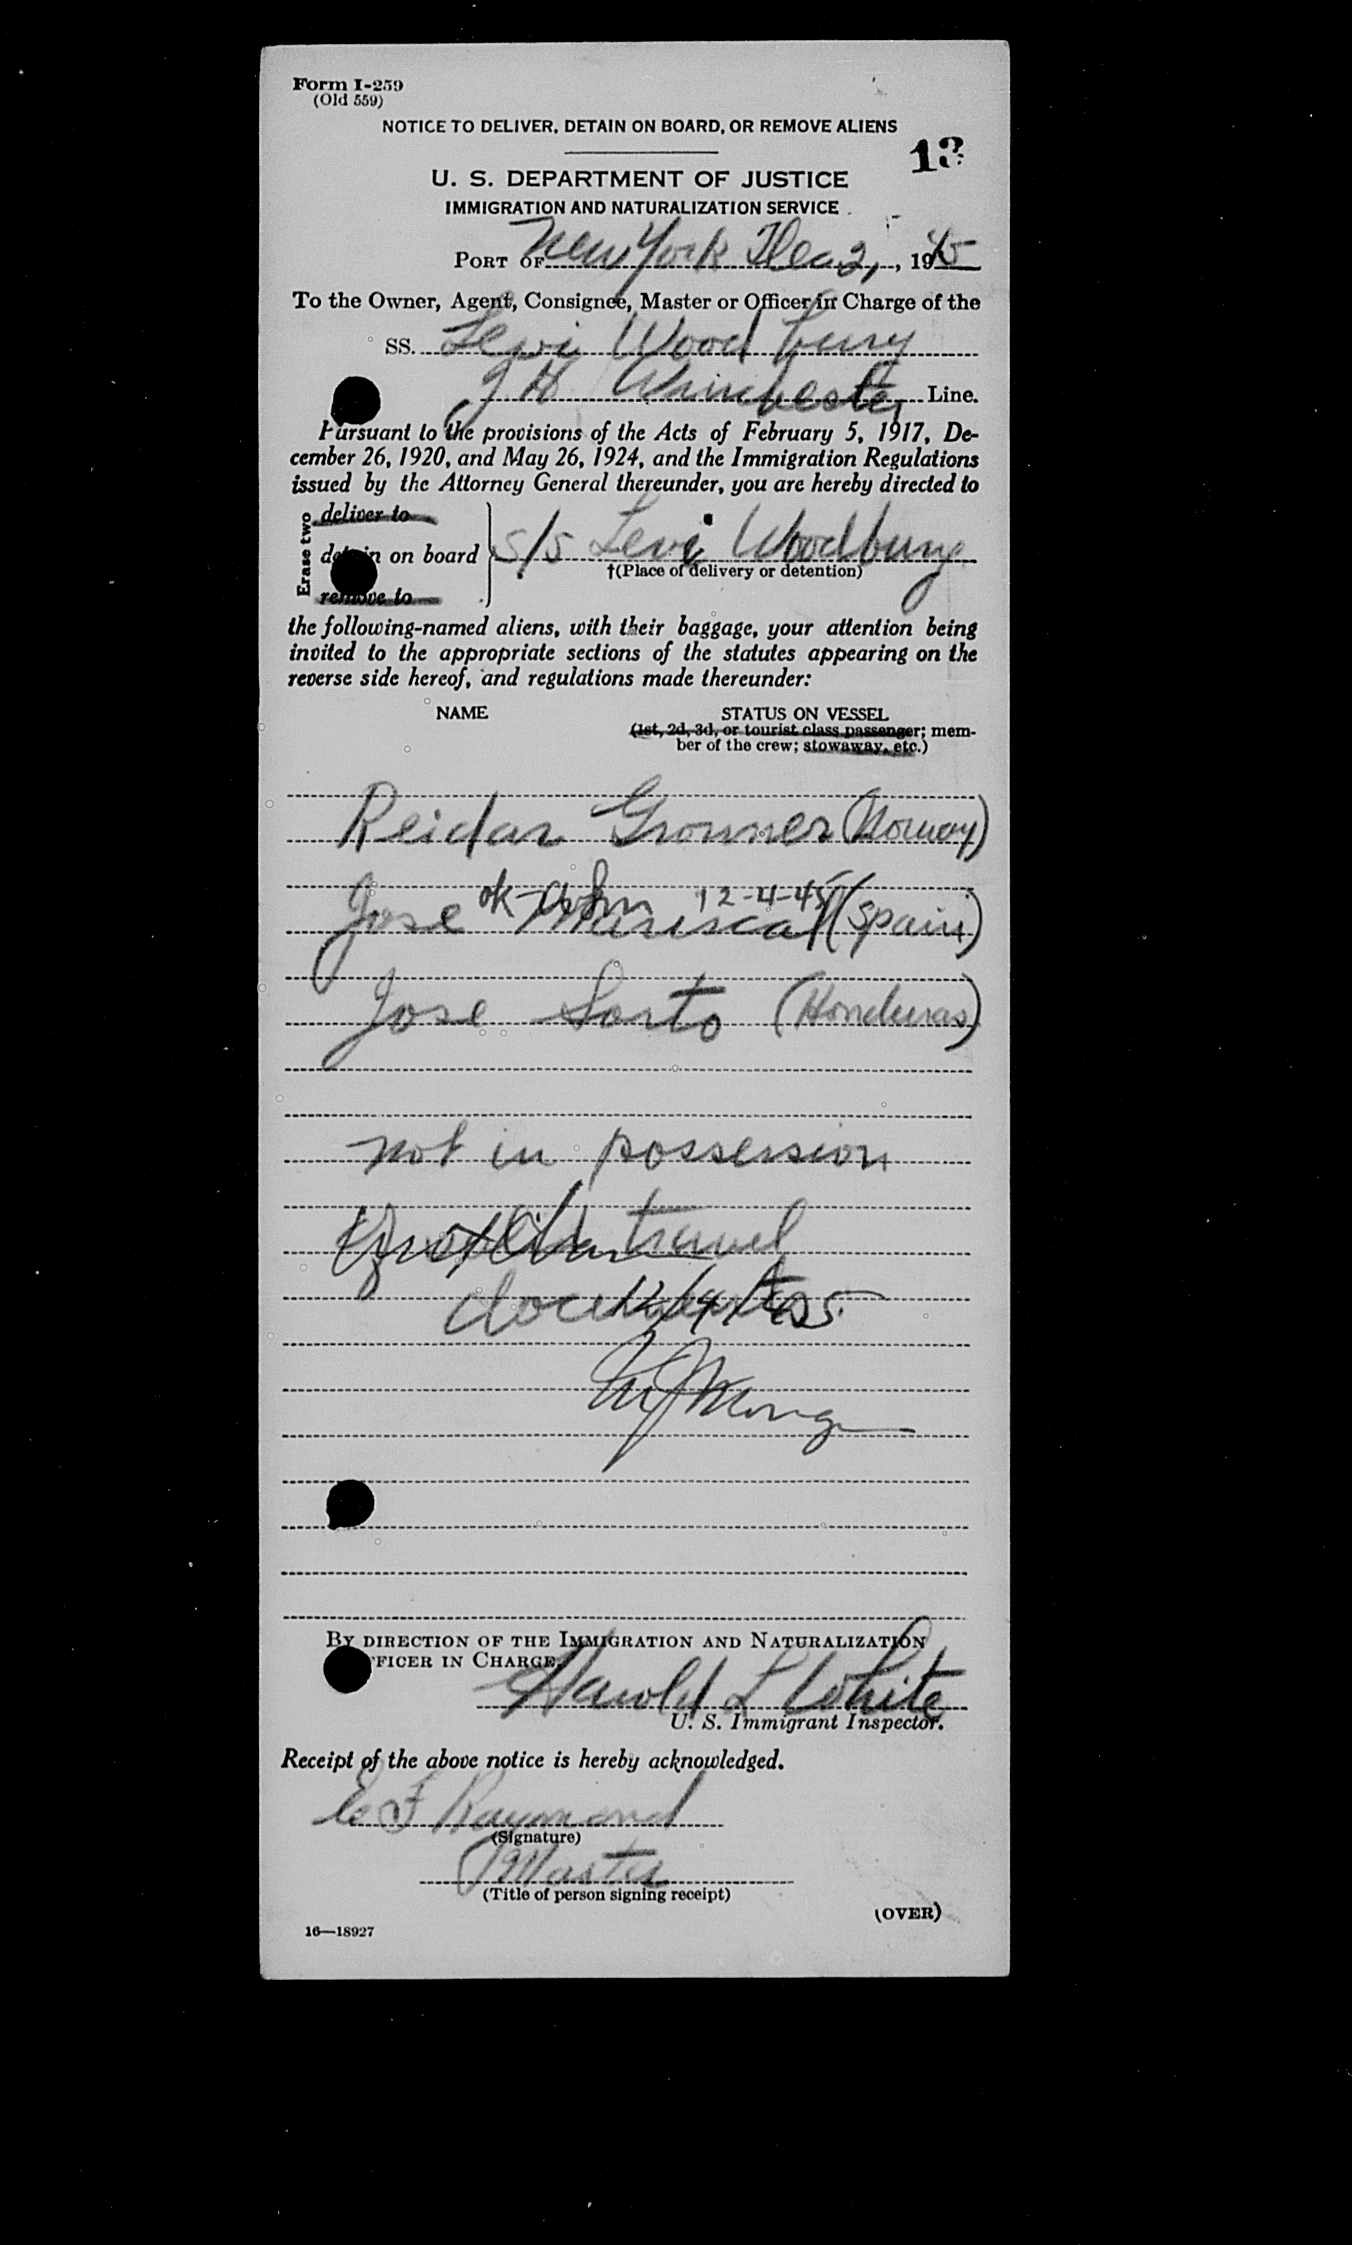 Form I-259
(Old 559)
NOTICE TO DELIVER, DETAIN ON BOARD, OR REMOVE ALIENS
13
U. S. DEPARTMENT OF JUSTICE
IMMIGRATION AND NATURALIZATION SERVICE
PORT OF New York Dec 2, , 1945
To the Owner, Agent, Consignee, Master or Officer in Charge of the
SS. Levi Woodbury
J. H. Winchester Line.
Pursuant to the provisions of the Acts of February 5, 1917, De-
cember 26, 1920, and May 26, 1924, and the Immigration Regulations
issued by the Attorney General thereunder, you are hereby directed to
Erase two
deliver to
detain on board s/s Levi Woodbury
†(Place of delivery or detention)
remove to
the following-named aliens, with their baggage, your attention being
invited to the appropriate sections of the statutes appearing on the
reverse side hereof, and regulations made thereunder:
NAME STATUS ON VESSEL
(1st, 2d, 3d, or tourist class passenger; mem-
ber of the crew; stowaway, etc.)
Reidar Gronner (Norway)
ok 12-4-45
Jose Mariscal (Spain)
Jose Sorto (Honduras)
not in possession
travel
documents
12/4/45
By direction of the Immigration and Naturalization
fficer in Charge.
Harold L White
U. S. Immigrant Inspector.
Receipt of the above notice is hereby acknowledged.
E F Raymond
(Signature)
Master
(Title of person signing receipt)
(OVER)
16—18927